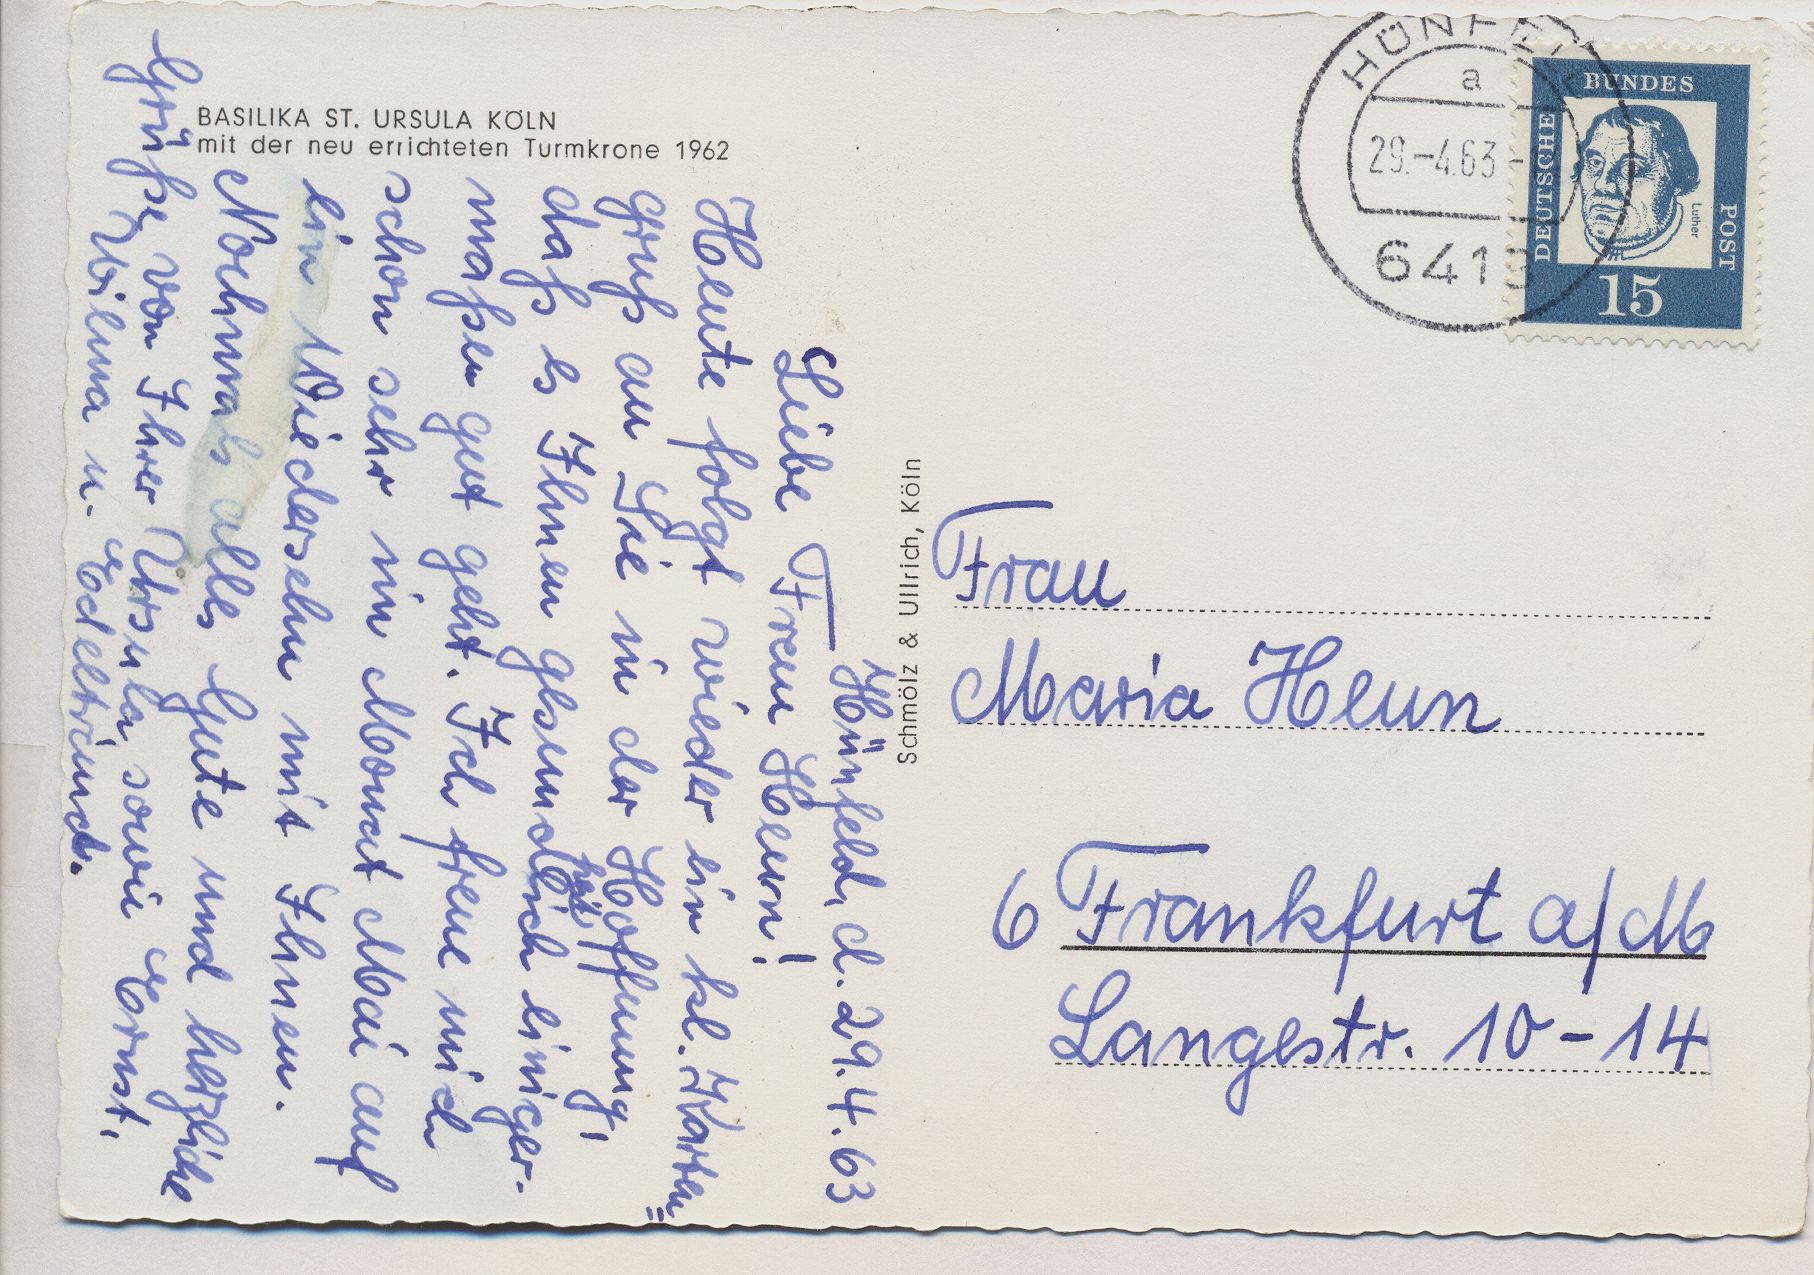 BASILIKA ST. URSULA KÖLN
mit der neu errichteten Turmkrone 1962
Hünfeld, d. 29.4.63
Liebe Frau Heun!
Heute folgt wieder ein kl. Karten=
gruß an Sie in der Hoffnung,
daß es Ihnen gesundheitlich einiger-
maßen gut geht. Ich freue mich
schon sehr im Monat Mai auf
ein Wiedersehn mit Ihnen.
Nochmals alles Gute und herzliche
Grüße von Ihrer Ursula, sowie Ernst,
Wilma u. Edeltraud.
Schmölz & Ullrich, Köln
HÜNFEL
a
29.-4.63-
6418
DEUTSCHE
BUNDES
POST
Luther
15
Frau
Maria Heun
6 Frankfurt a/M
Langestr. 10-14